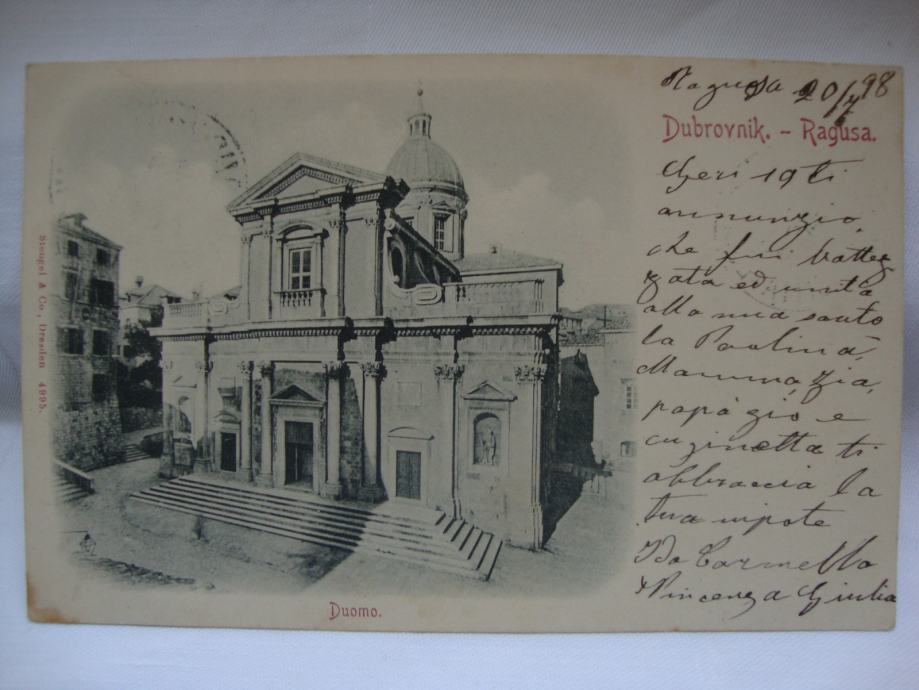 Ragusa 20/7 98
Dubrovnik. - Ragusa.
Ieri 19 ti
annunzio,
che fui batteg
zata ed unita
alla mia santo
la Paolina,
Mamma, Zia,
papà gio e
cuginetta ti
abbraccia la
tua nipote
Ida Carmella
Vincenza Giulia
Stengel & Co., Dresden 4995.
Duomo.